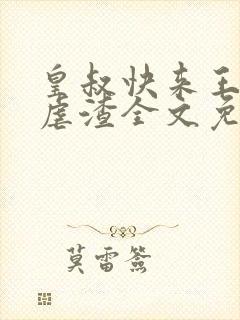 皇叔快来王
虐渣全文免
莫雷签